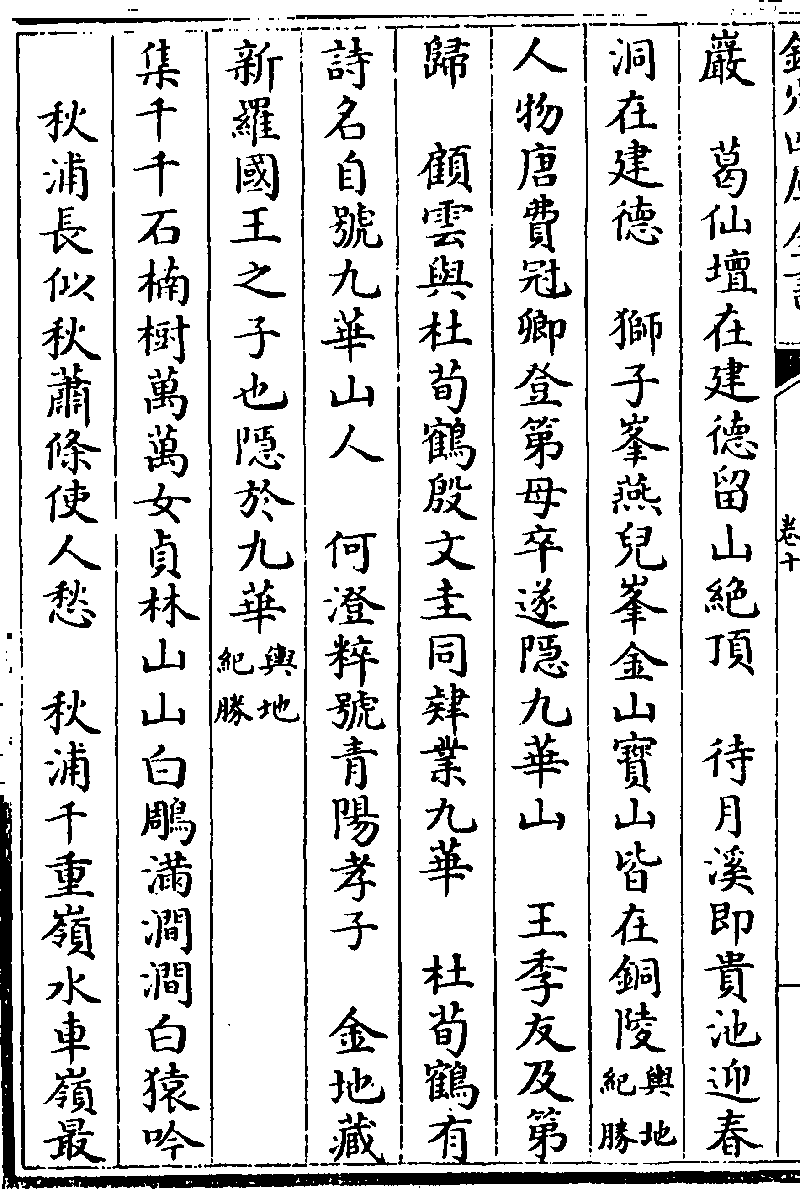 欽定四庫全書
卷十
巖　葛仙壇在建德留山絶頂　待月溪即貴池迎春
洞在建德　獅子峯燕兒峯金山寶山皆在銅陵輿地紀勝
人物唐費冠卿登第母卒遂隠九華山　王季友及第
歸　顧雲與杜荀鶴殷文圭同肄業九華　杜荀鶴有
詩名自號九華山人　何澄粹號青陽孝子　金地藏
新羅國王之子也隠於九華輿地紀勝
集千千石楠樹萬萬女貞林山山白鵰滿澗澗白猿吟
秋浦長似秋蕭條使人愁　秋浦千重嶺水車嶺最